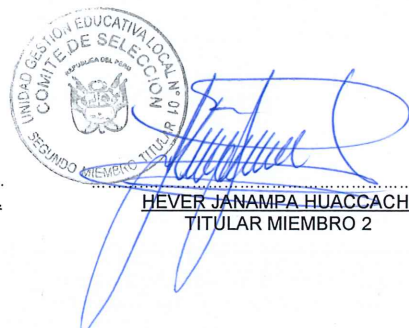 UNIDAD GESTIÓN EDUCATIVA LOCAL N° 01
COMITÉ DE SELECCIÓN
REPUBLICA DEL PERÚ
SEGUNDO MIEMBRO TITULAR
HEVER JANAMPA HUACCACH
TITULAR MIEMBRO 2